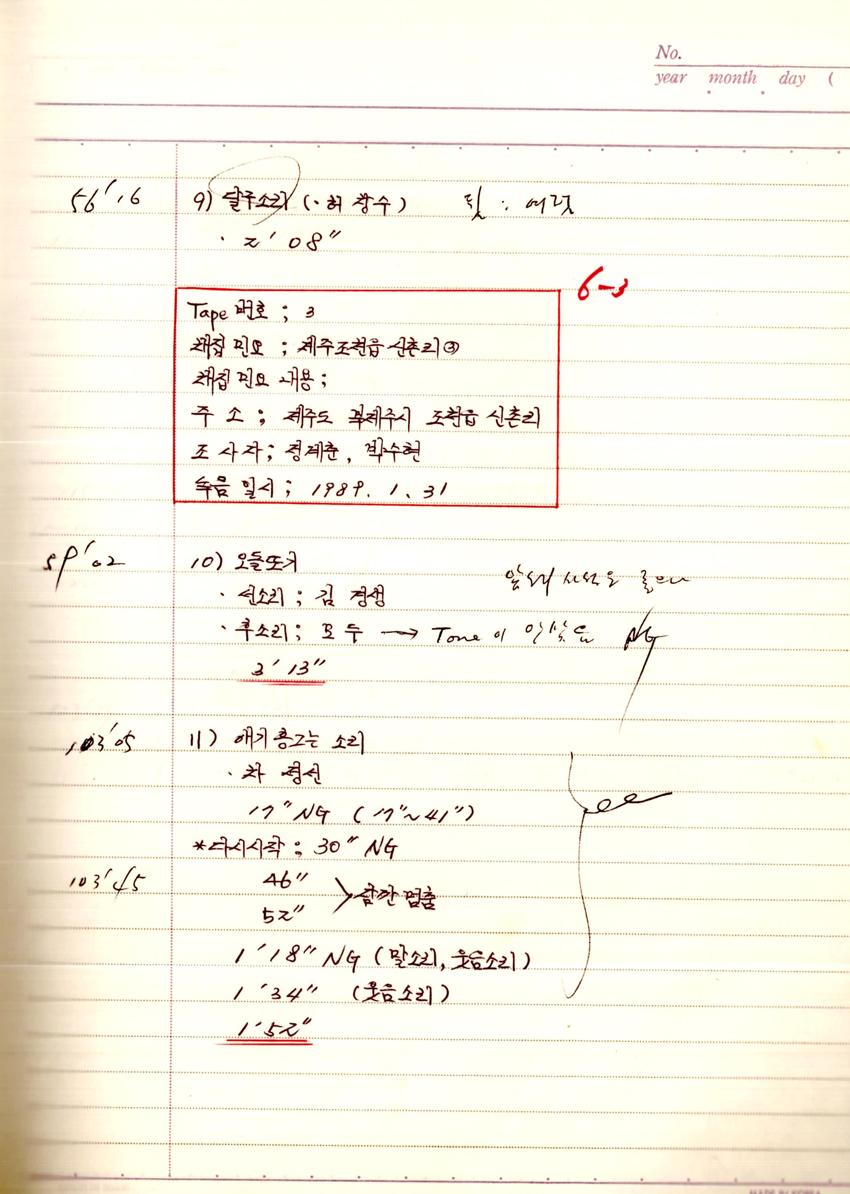 No.
year month day (
56'16 9) 달구소리 (·허 창수)
· 2'08"
6-3
Tape 번호 ; 3
채집 민요 ; 제주조천읍 신촌리③
채집 민요 내용 ;
주 소 ; 제주도 북제주시 조천읍 신촌리
조 사 자 ; 정제춘, 박수현
녹음 일시 ; 1989. 1. 31
59'02 10) 오돌또기
· 선소리 ; 김 경생
· 후소리 ; 모두 → Tone이 NG
3'13"
103'05 11) 애기흥그는 소리
· 차 평선
17" NG (17"~41")
*다시시작 ; 30" NG
103'45 46"
52" 잠깐 멈춤
1'18" NG (말소리, 웃음소리)
1'34" (웃음소리)
1'52"